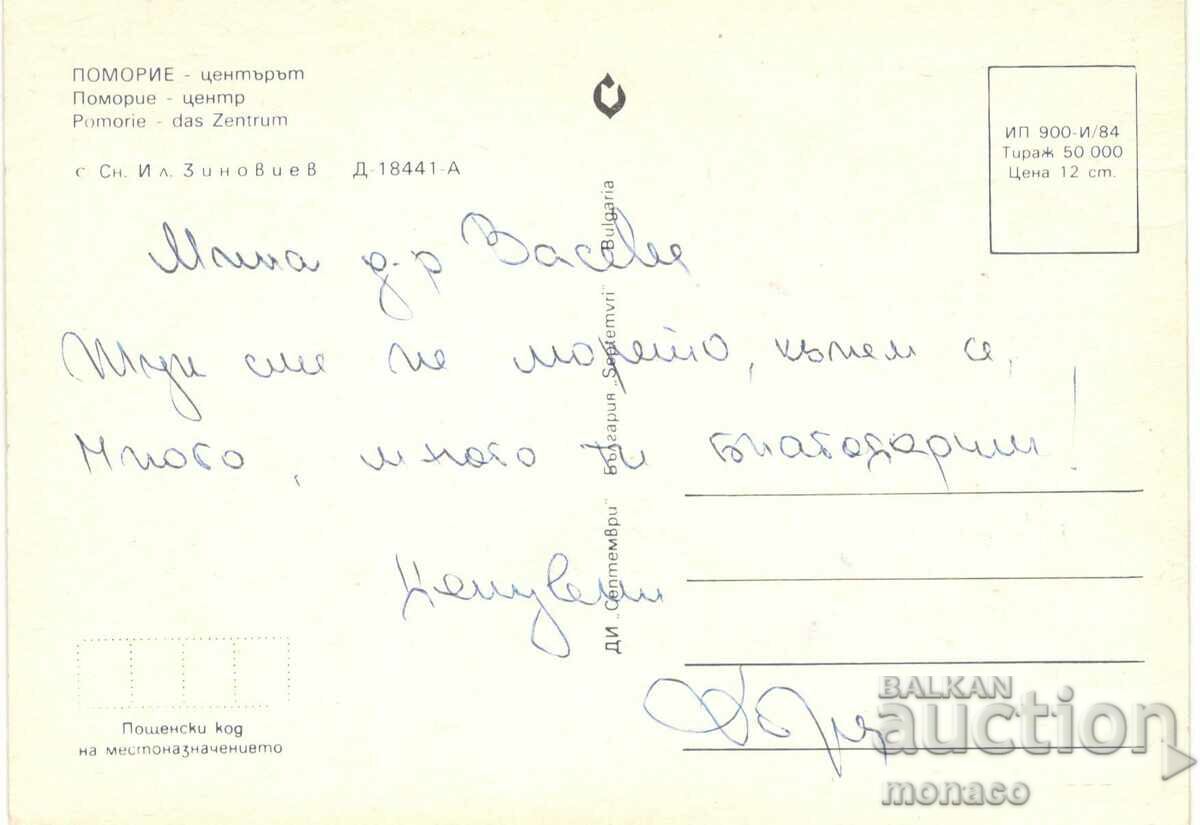 ПОМОРИЕ - центърът
Поморие - център
Pomorie - das Zentrum
с Сн. Ил. Зиновиев Д-18441-А
ИП 900-И/84
Тираж 50 000
Цена 12 ст.
ДИ „Септември" България „Septemvri" Bulgaria
Мила д-р Васева
Тук сме на морето, къпем се,
Много, много ти благодарим!
Целувки
Пощенски код
на местоназначението
BALKAN
auction
monaco